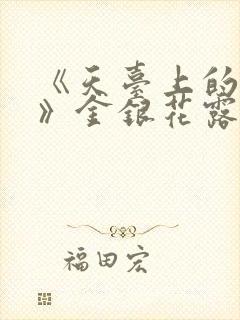 《天臺上的
》金銀花露
福田宏